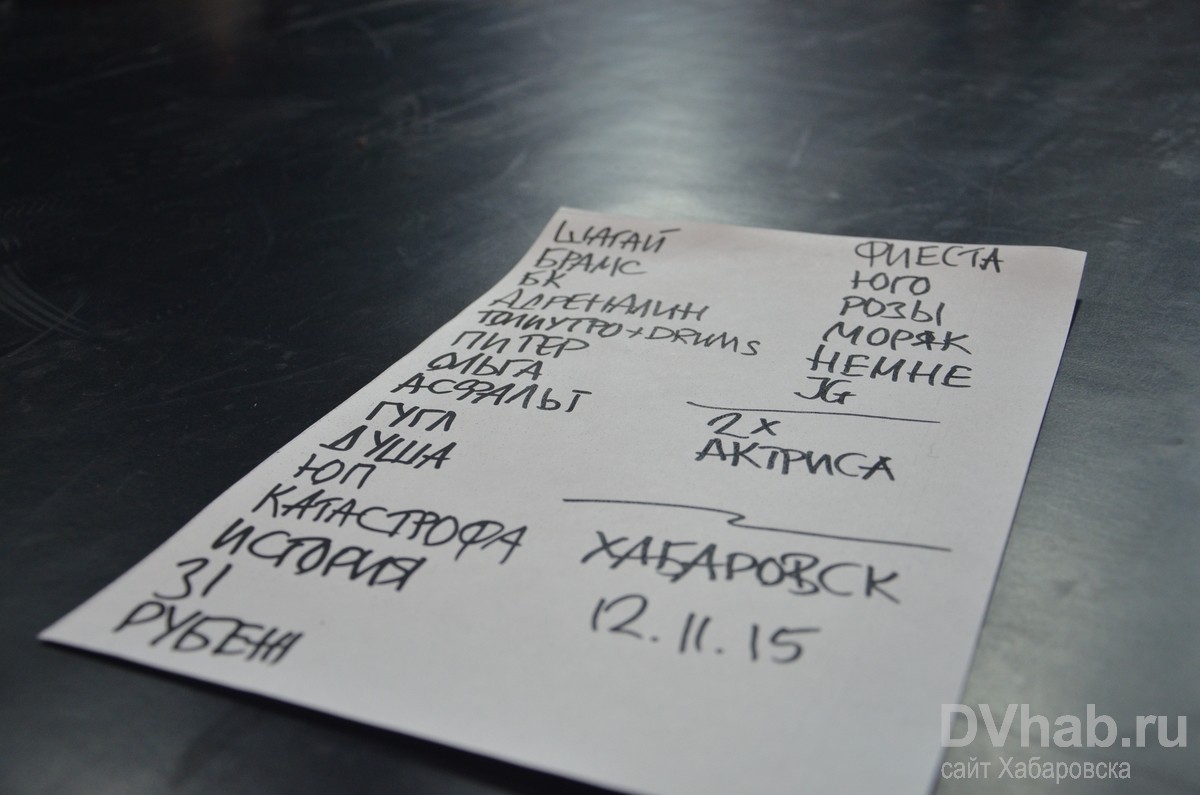 ШАГАЙ
БРАМС
БК
АДРЕНАЛИН
ТОЛИУТРО+DRUMS
ПИТЕР
ОЛЬГА
АСФАЛЬТ
ГУГЛ
ДУША
ЮП
КАТАСТРОФА
ИСТОРИЯ
31
РУБЕЖ
ФИЕСТА
ЮГО
РОЗЫ
МОРЯК
НЕМНЕ
JG
2х
АКТРИСА
ХАБАРОВСК
12.11.15
DVhab.ru
сайт Хабаровска